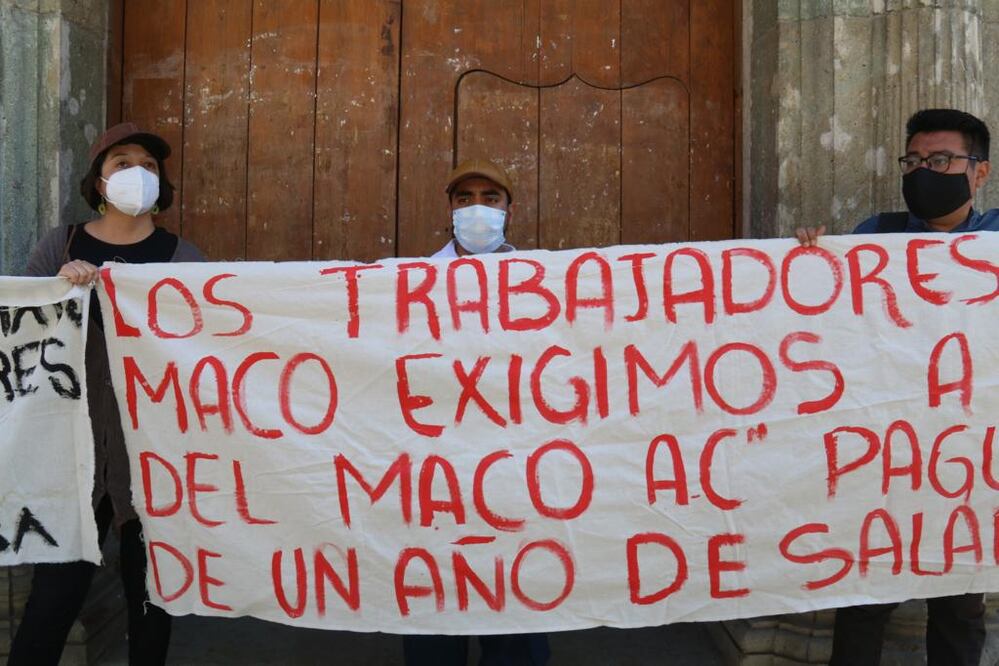 RES
LOS TRABAJADORES
MACO EXIGIMOS A
DEL MACO AC" PAGU
DE UN AÑO DE SALA